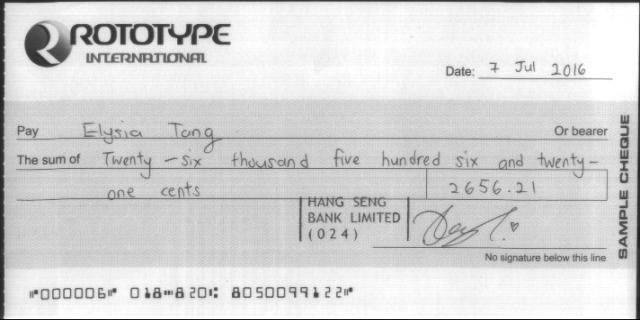 ROTOTYPE
INTERNATIONAL
Date: 7 Jul 2016
Pay Elysia Tang Or bearer
The sum of Twenty-six thousand five hundred six and twenty-
one cents 2656.21
HANG SENG
BANK LIMITED
(024)
No signature below this line
SAMPLE CHEQUE
⑈000006⑈ 018⑉820⑆ 8050099122⑈